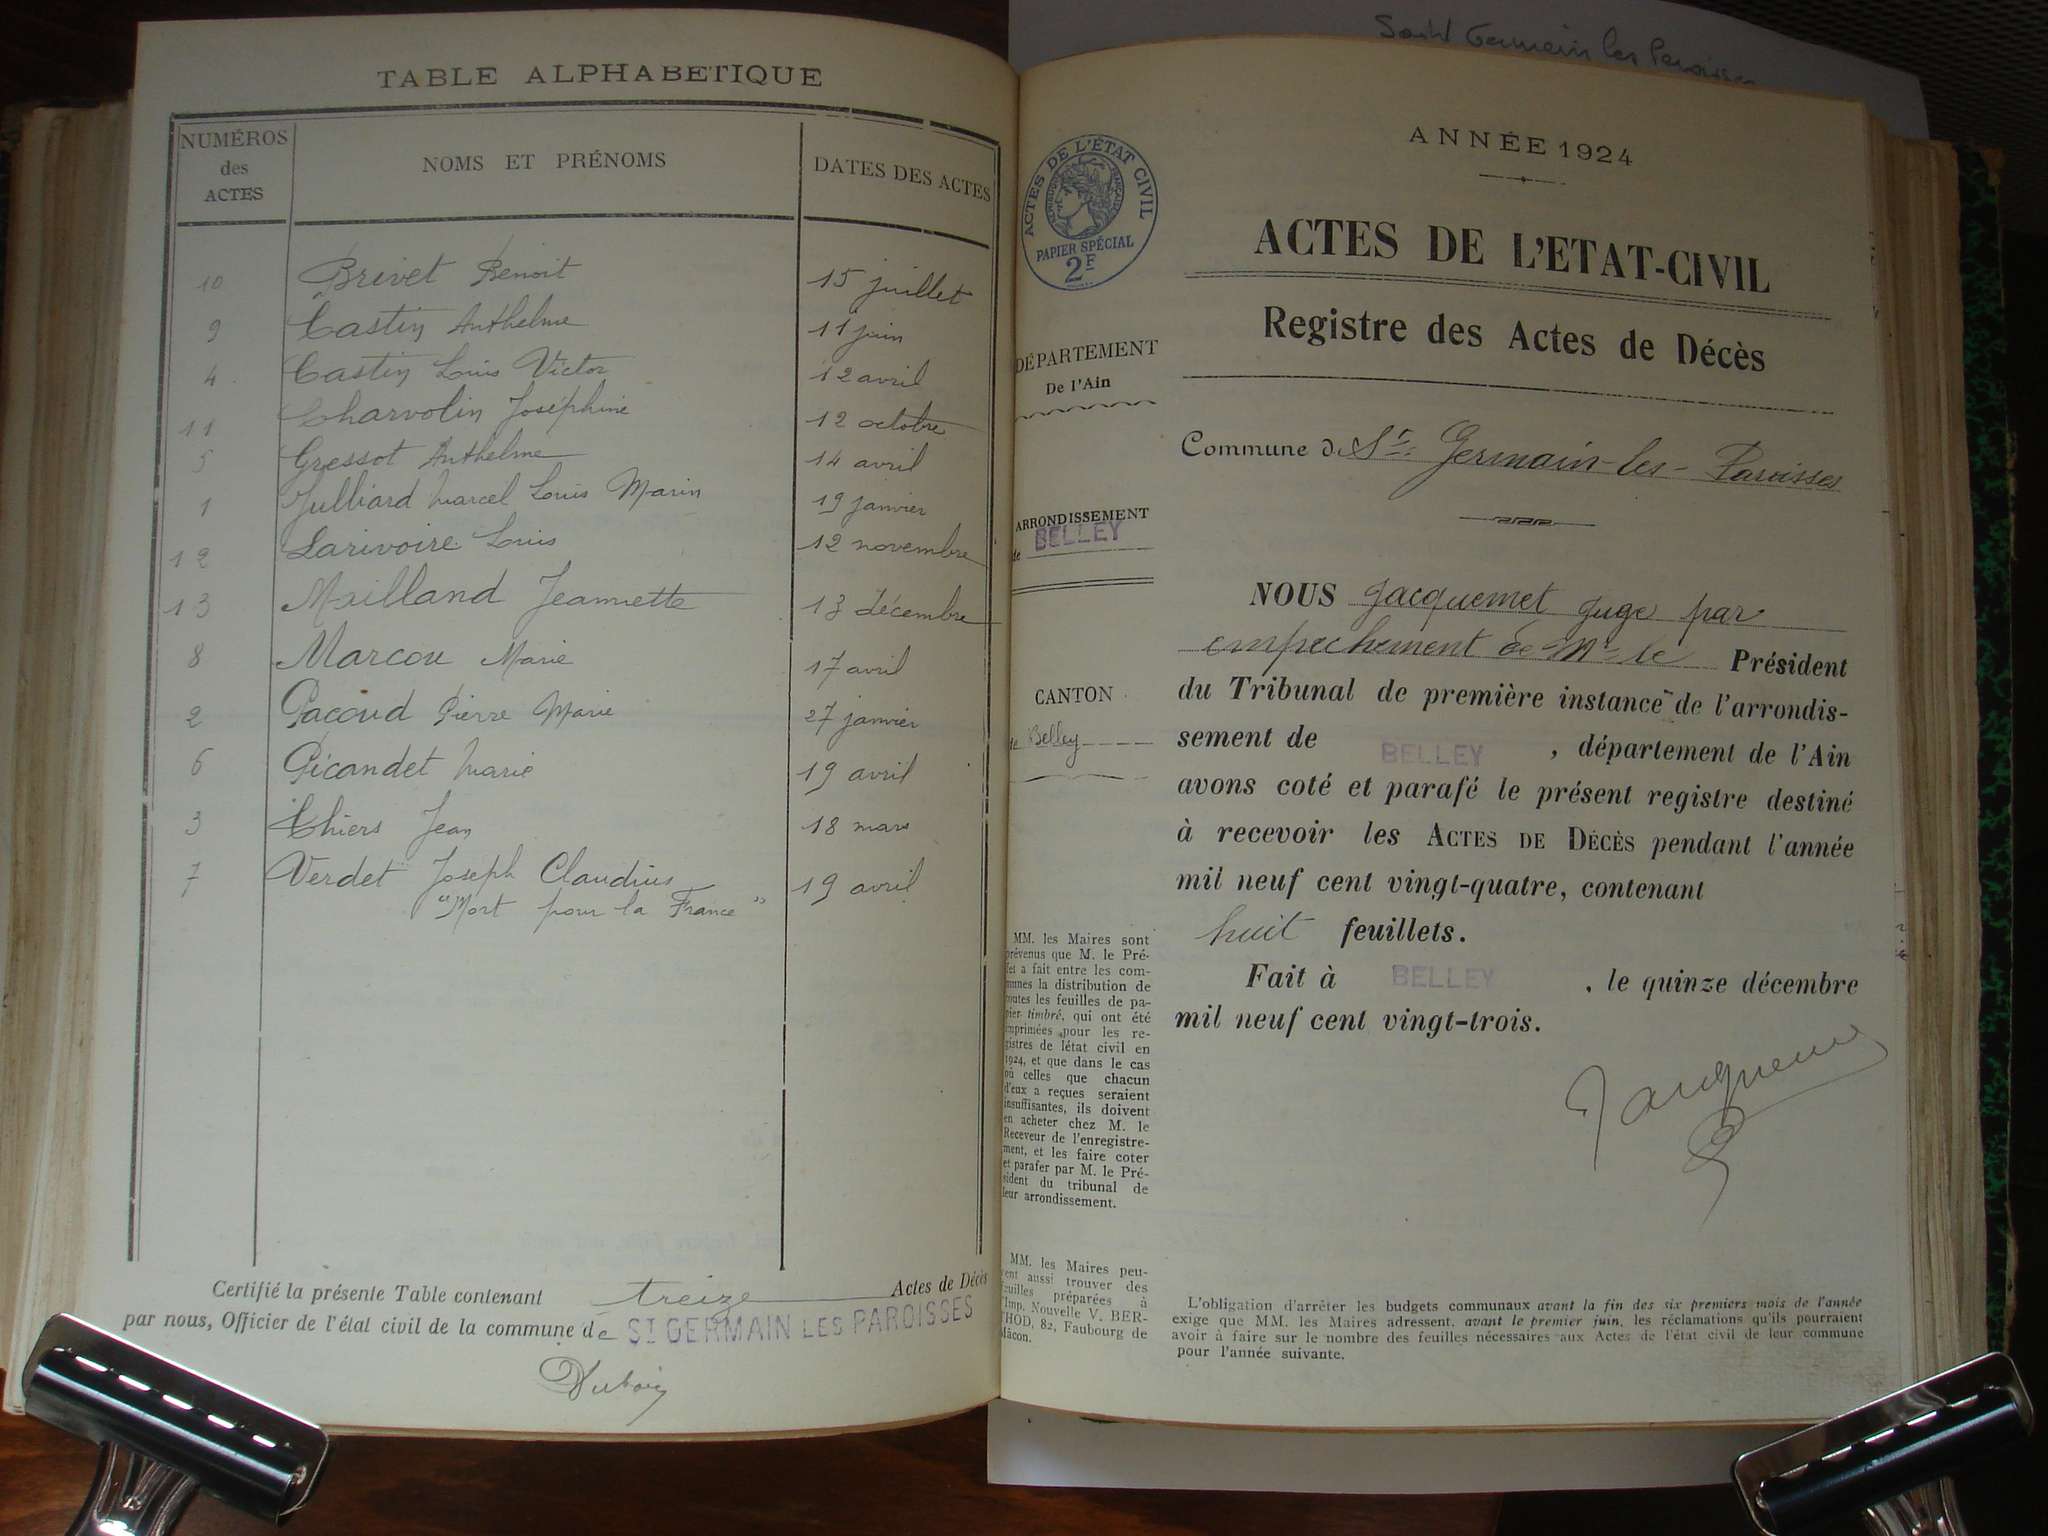 Saint Germain les Paroisses
TABLE ALPHABETIQUE
NUMÉROS des ACTES NOMS ET PRÉNOMS DATES DES ACTES
10 Brivet Benoit 15 juillet
9 Castin Anthelme 11 juin
4 Castin Louis Victor 12 avril
11 Charvolin Joséphine 12 octobre
5 Gressot Anthelme 14 avril
1 Julliard Marcel Louis Marin 19 janvier
12 Larivoire Louis 12 novembre
13 Mailland Jeannette 13 décembre
8 Marcou Marie 17 avril
2 Pacoud Pierre Marie 27 janvier
6 Picandet Marie 19 avril
3 Thiers Jean 18 mars
7 Verdet Joseph Claudius 19 avril
"Mort pour la France"
Certifié la présente Table contenant treize Actes de Décès
par nous, Officier de l'état civil de la commune de ST GERMAIN LES PAROISSES
Dubois
ACTES DE L'ÉTAT CIVIL
RÉPUBLIQUE FRANÇAISE
PAPIER SPÉCIAL
2F
DÉPARTEMENT
De l'Ain
ARRONDISSEMENT
de BELLEY
CANTON
de Belley
MM. les Maires sont
prévenus que M. le Pré-
fet a fait entre les com-
munes la distribution de
toutes les feuilles de pa-
pier timbré, qui ont été
imprimées pour les re-
gistres de létat civil en
1924, et que dans le cas
où celles que chacun
d'eux a reçues seraient
insuffisantes, ils doivent
en acheter chez M. le
Receveur de l'enregistre-
ment, et les faire coter
et parafer par M. le Pré-
sident du tribunal de
leur arrondissement.
MM. les Maires peu-
vent aussi trouver des
feuilles préparées à
l'Imp. Nouvelle V. BER-
THOD, 82, Faubourg de
Mâcon.
ANNÉE 1924
ACTES DE L'ETAT-CIVIL
Registre des Actes de Décès
Commune de St Germain-les-Paroisses
NOUS Jacquemet juge par
empechement de Mr le Président
du Tribunal de première instance de l'arrondis-
sement de BELLEY, département de l'Ain
avons coté et parafé le présent registre destiné
à recevoir les ACTES DE DÉCÈS pendant l'année
mil neuf cent vingt-quatre, contenant
huit feuillets.
Fait à BELLEY, le quinze décembre
mil neuf cent vingt-trois.
L'obligation d'arrêter les budgets communaux avant la fin des six premiers mois de l'année
exige que MM. les Maires adressent, avant le premier juin, les réclamations qu'ils pourraient
avoir à faire sur le nombre des feuilles nécessaires aux Actes de l'état civil de leur commune
pour l'année suivante.